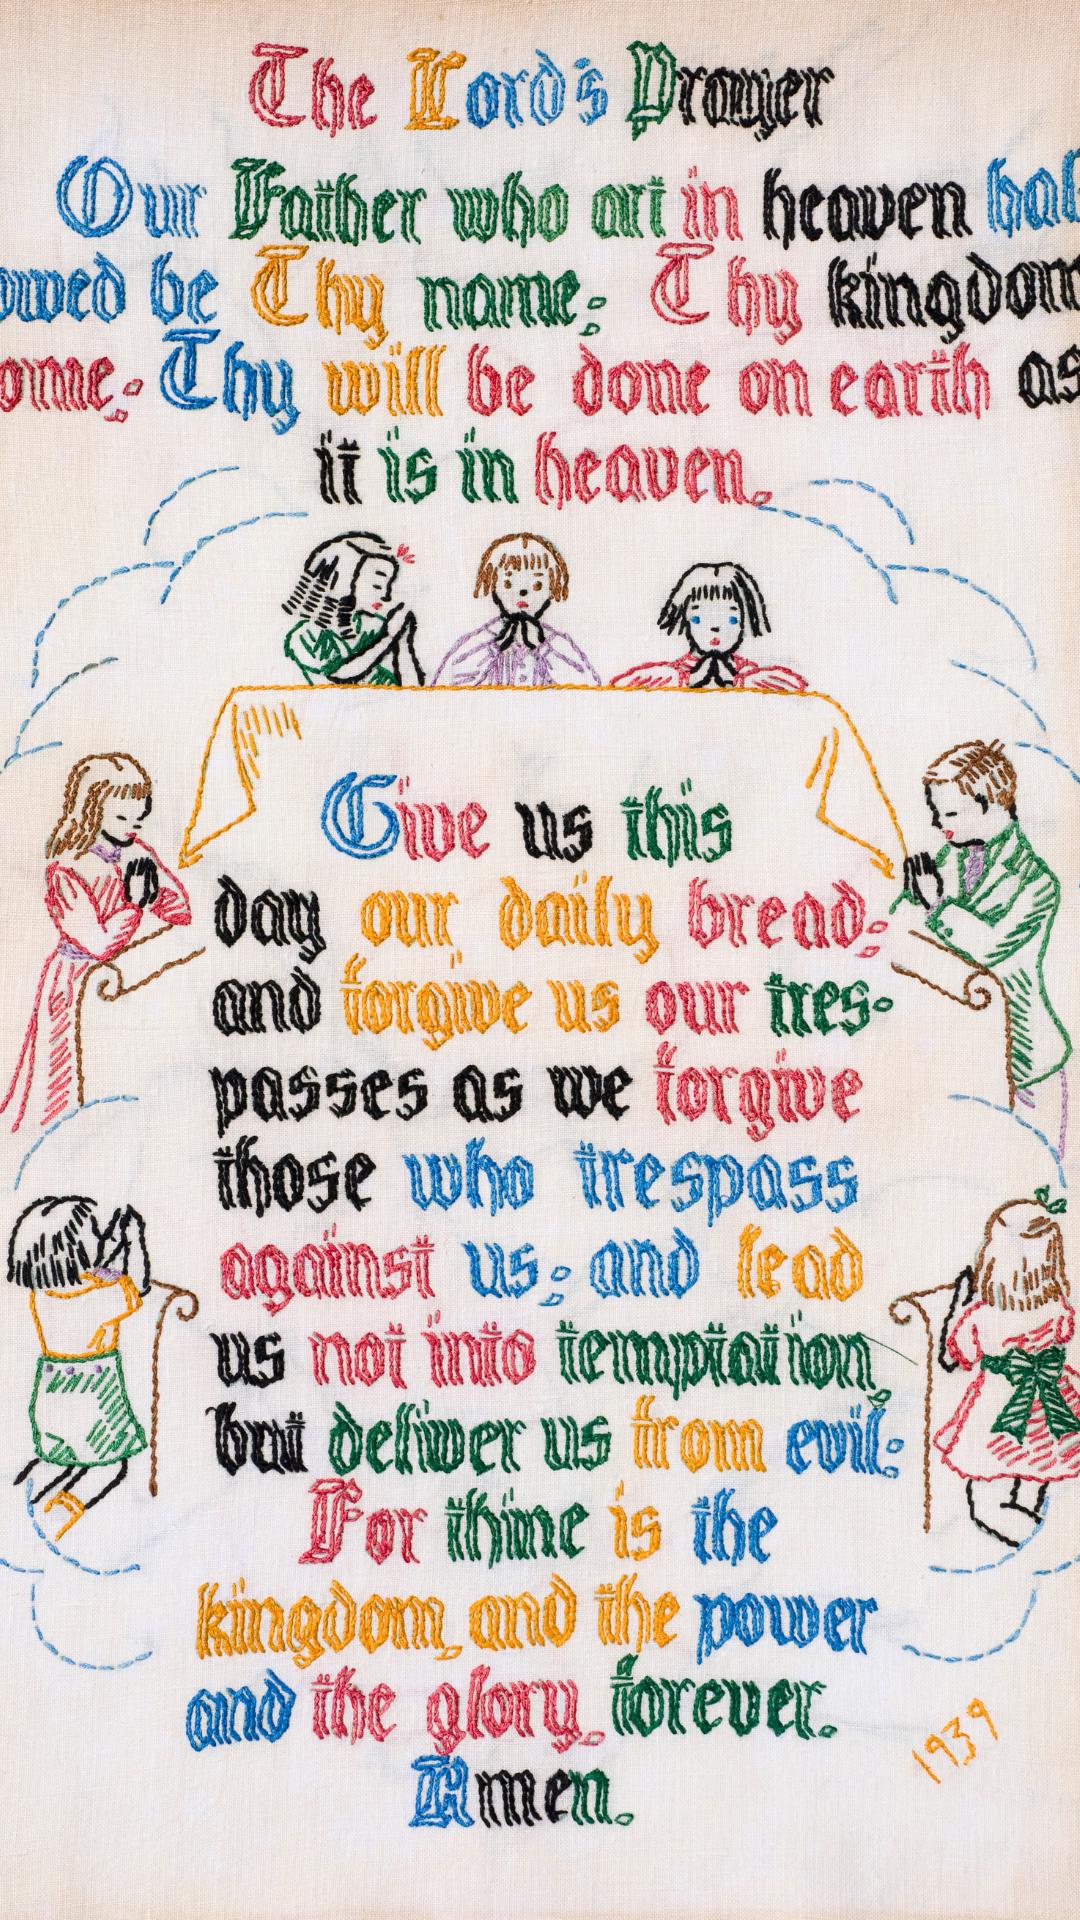 The Lord's Prayer
Our Father who art in heaven hal
owed be Thy name; Thy kingdom
ome; Thy will be done on earth as
it is in heaven.
Give us this
day our daily bread;
and forgive us our tres-
passes as we forgive
those who trespass
against us; and lead
us not into temptation,
but deliver us from evil:
For thine is the
kingdom, and the power
and the glory, forever.
Amen.
1939